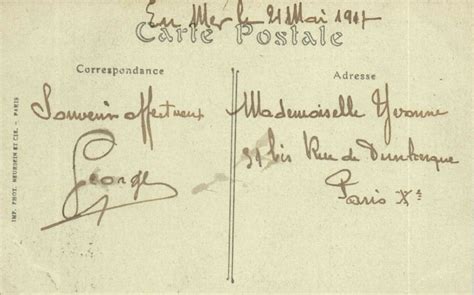 En Mer le 21 Mai 1917
Carte Postale
Correspondance
Adresse
Souvenir affectueux
George
Mademoiselle Yvonne
31 bis Rue de Dunkerque
Paris Xe
IMP. PHOT. NEURDEIN ET CIE. - PARIS